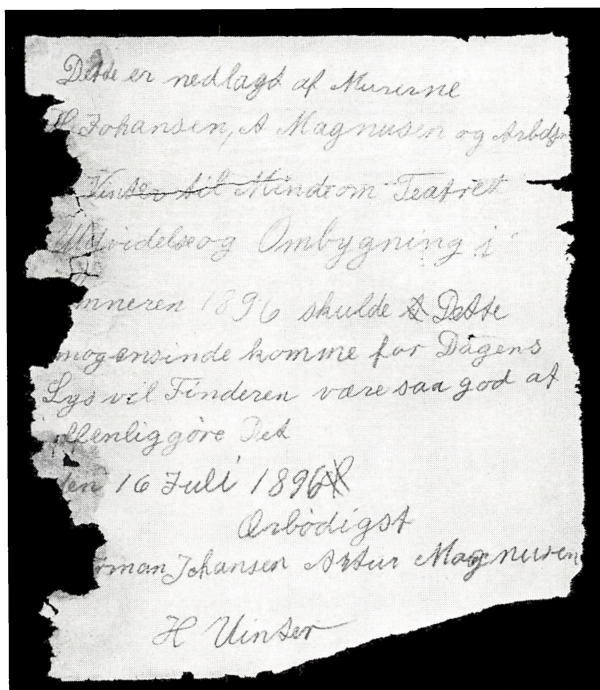 Dette er nedlagt af Murerne
H Johansen, A Magnusen og Arbdsm
Vinter til Minde om Teatret
Udvidelse og Ombygning i
mneren 1896 skulde Dette
mogensinde komme for Dagens
Lys vil Finderen være saa god at
ffenliggöre Det
den 16 Juli 1896
Ærbödigst
rman Johansen Artur Magnusen
H Vinter